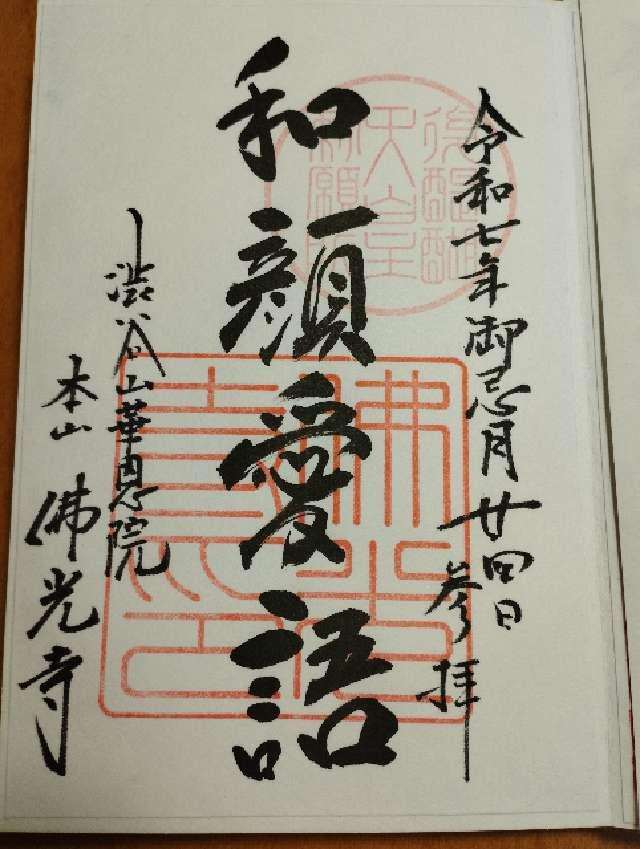 令和七年御忌月廿四日
参拝
和顔愛語
渋谷山華恩院
本山 佛光寺
後醍醐
天皇
勅願所